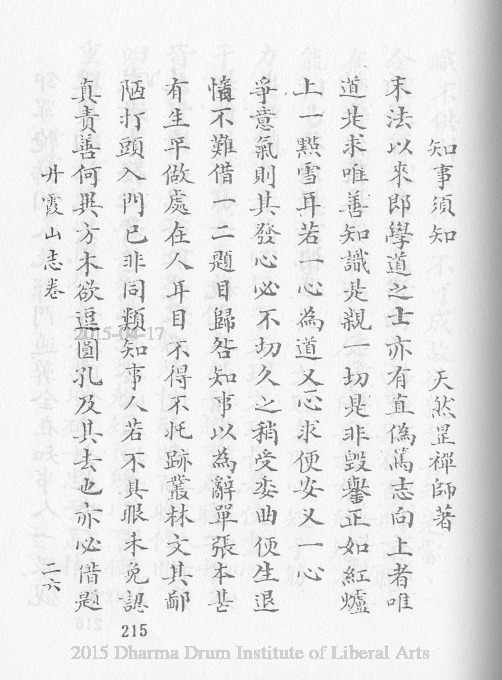 知事須知　天然昰禪師著
末法以來即學道之士亦有直偽篤志向上者唯
道是求唯善知識是親一切是非毀譽正如紅爐
上一點雪耳若一心為道又一心求便安又一心
爭意氣則其發心必不切久之稍受委曲便生退
惰不難借一二題目歸咎知事以為辭單張本甚
有生平做處在人耳目不得不托跡叢林文其鄙
陋打頭入門已非同類知事人若不具眼未免認
真責善何異方木欲逗圓孔及其去也亦必借題
丹霞山志卷　二六
215
2015-04-17
2015 Dharma Drum Institute of Liberal Arts